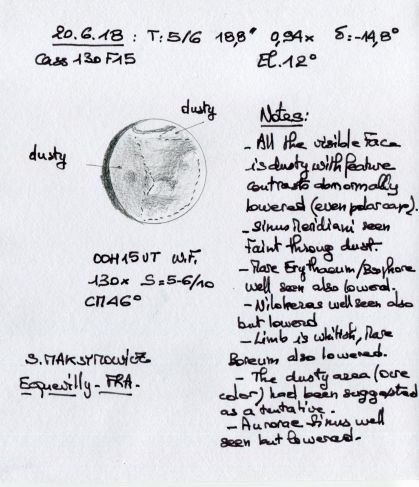 20.6.18 : T: 5/6 18,8" 0,94x δ:-14,8°
Cass 130 F15 El. 12°
dusty
dusty
00H15UT W.F.
130x S=5-6/10
CM 46°
S. MAKSYMOWICZ
Ecquevilly - FRA.
Notes:
- All the visible Face
is dusty with feature
contrasts abnormally
lowered (even polar cap).
- Sinus Meridiani seen
faint throug dust.
- Mare Erythraeum/Bosphore
well seen also lowerd.
- Nilokeras well seen also
but lowerd
- Limb is whitish, Mare
Boreum also lowered.
- The dusty area (ocre
color) had been suggested
as a tentative.
- Aurorae Sinus well
seen but lowered.